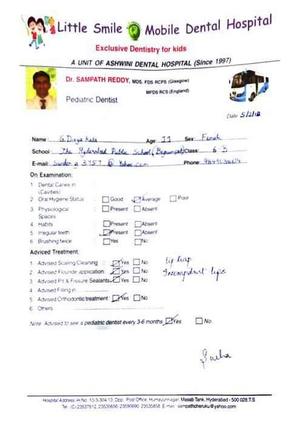 Little Smile Mobile Dental Hospital
Exclusive Dentistry for kids
A UNIT OF ASHWINI DENTAL HOSPITAL (Since 1997)
Dr. SAMPATH REDDY, MDS, FDS RCPS (Glasgow)
MFDS RCS (England)
Pediatric Dentist
Date
Name Age 11 Sex Female
School The Hyderabad Public School, Begumpet Class 6 B
E-mail Phone
On Examination:
1 Dental Caries in (Cavities)
2 Oral Hygiene Status Good Average Poor
3 Physiological Spaces Present Absent
4 Habits Present Absent
5 Irregular teeth Present Absent
6 Brushing twice Yes No
Adviced Treatment:
1 Advised Scaling Cleaning Yes No lip
2 Advised Flouride application Yes No Incompetent lips
3 Advised Pit & Fissure Sealants Yes No
4 Advised Filling in
5 Advised Orthodontic treatment Yes No
6 Others
Note: Advised to see a pediatric dentist every 3-6 months Yes No
Hospital Address: H.No. Opp. Post Office, Humayunnagar, Masab Tank, Hyderabad - 500 028 T.S